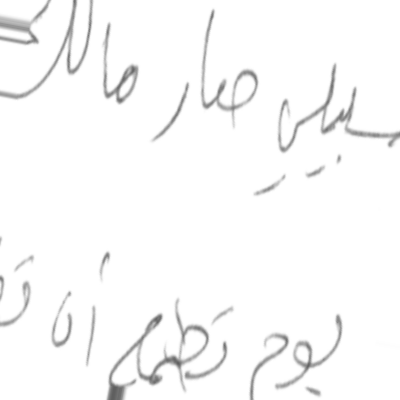 سبيلي صار مالك
يوم تطمح أن